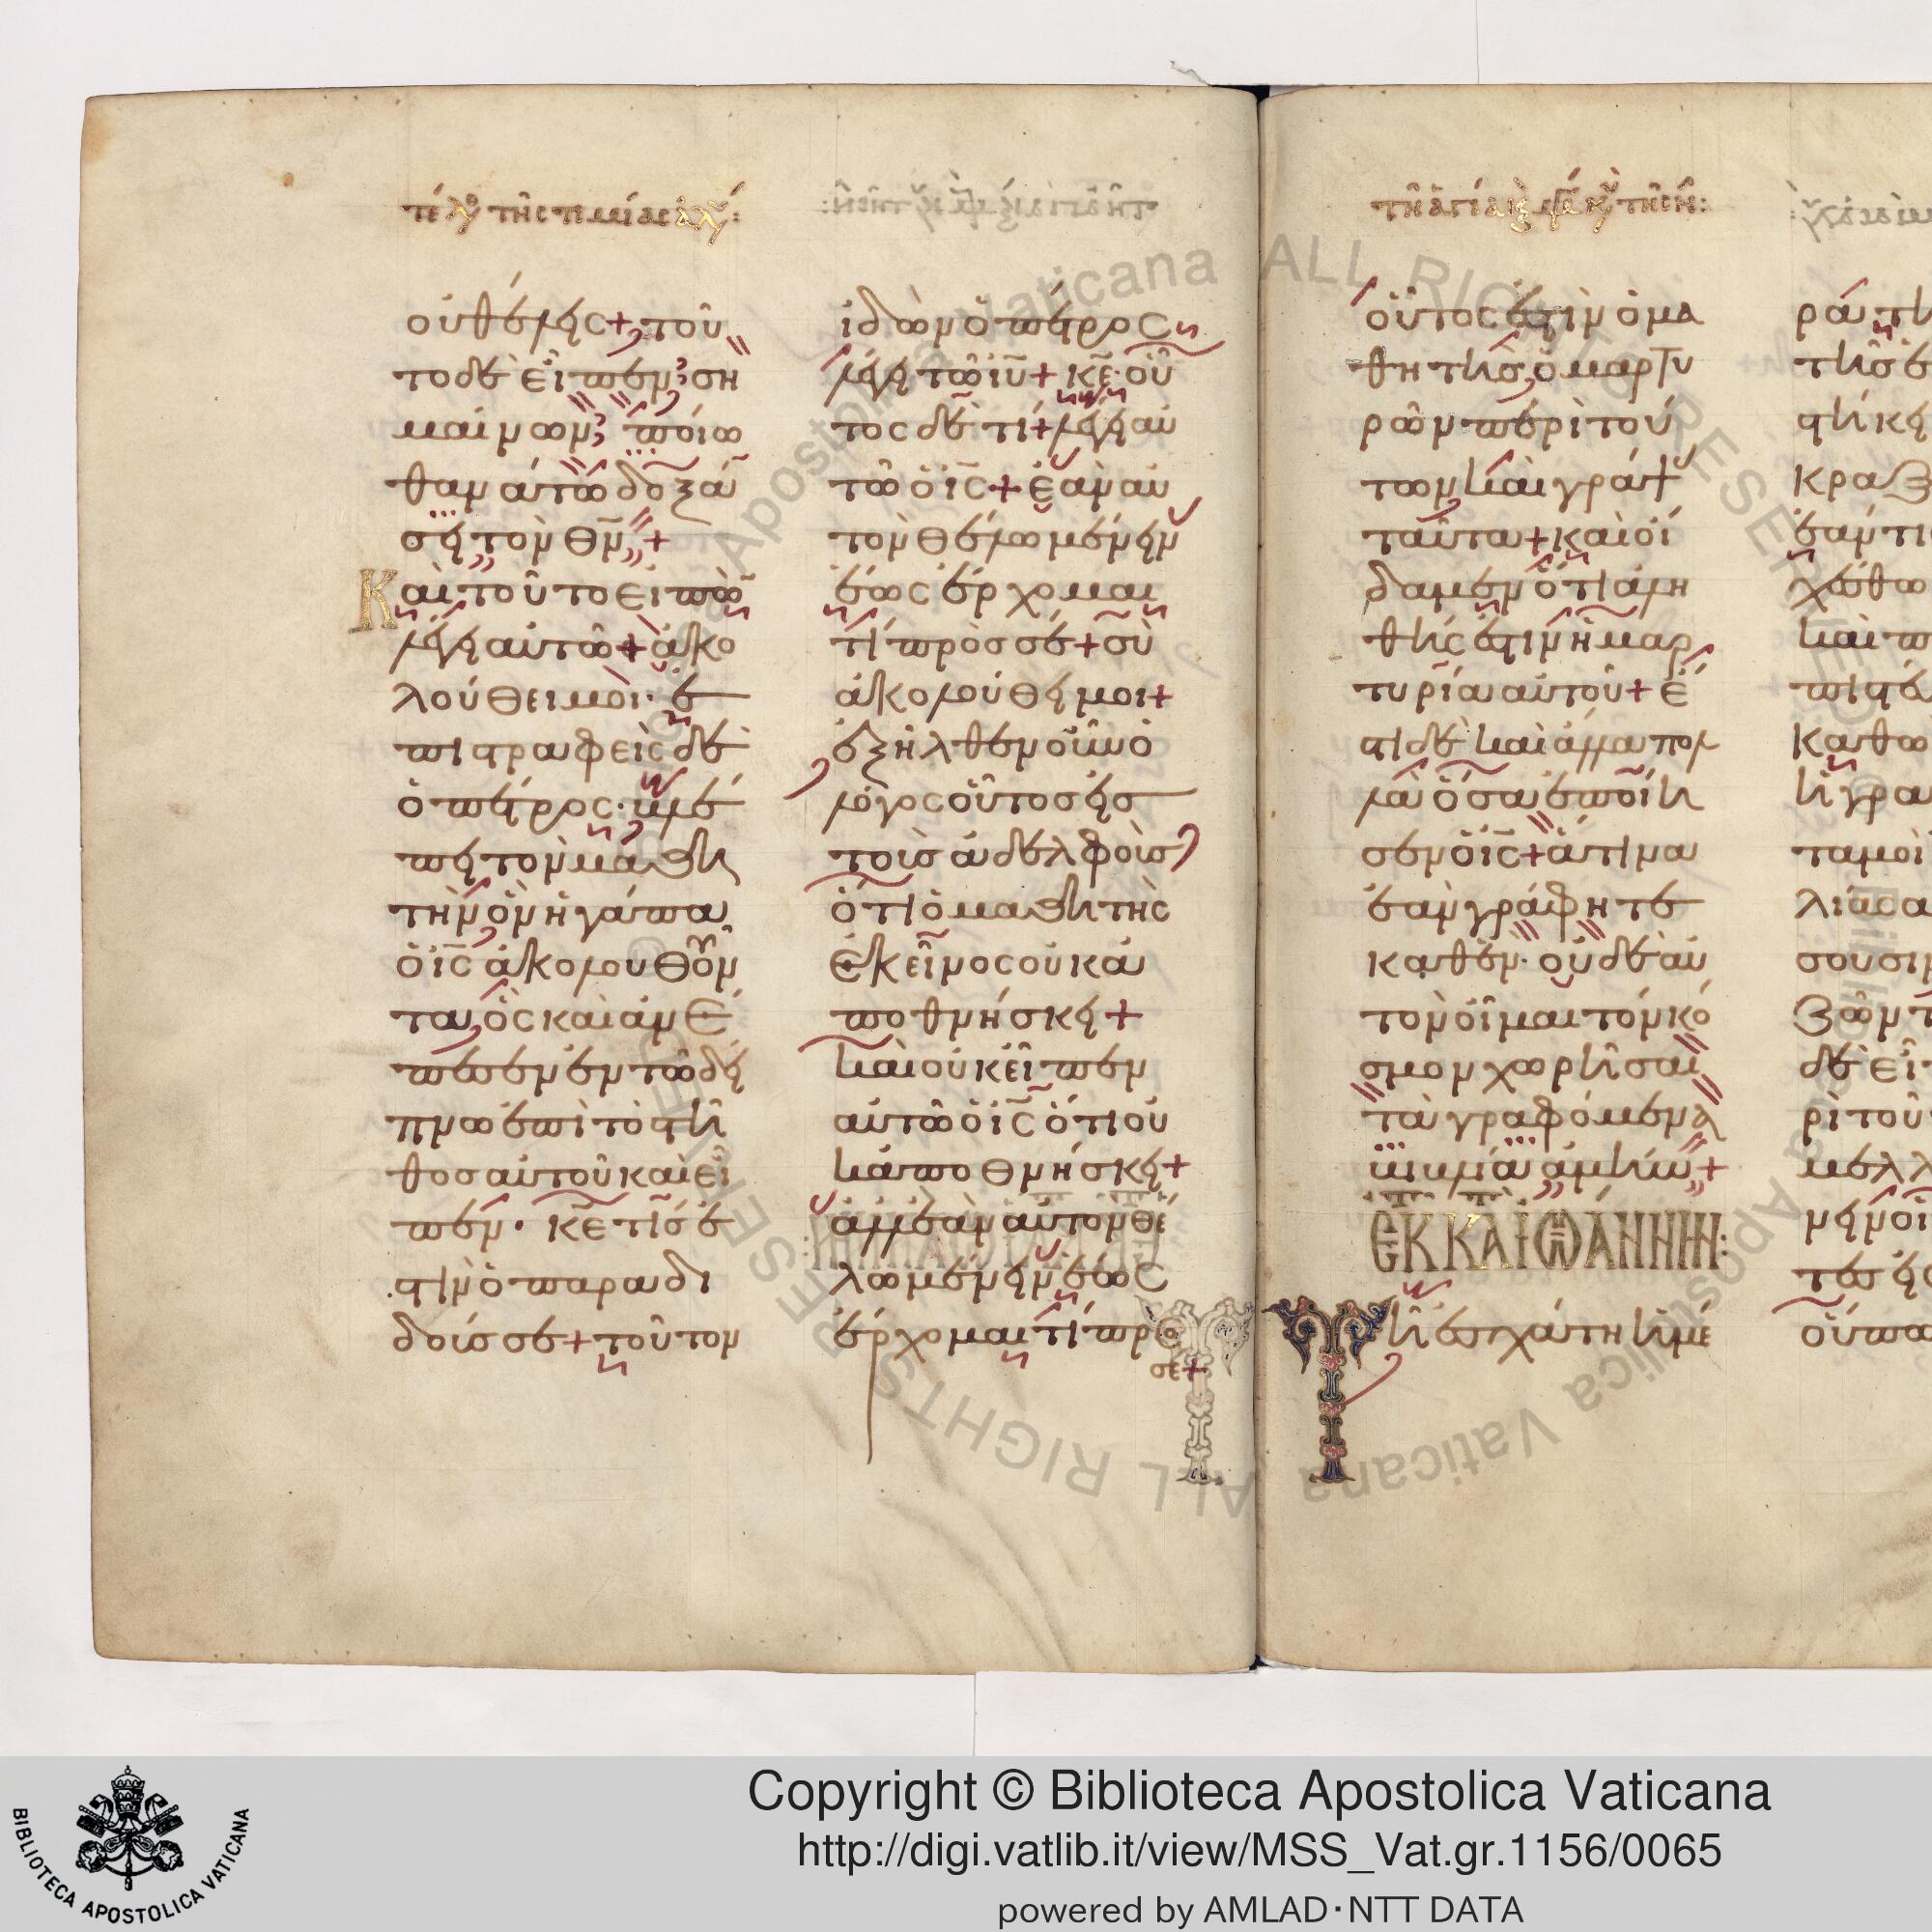 οὐ θέλεις + τοῦ
το δὲ εἶπεν, ση
μαίνων, ποίω
θανάτω δοξά
σει τὸν θν +
Καὶ τοῦτο εἰπὼν
λέγει αὐτῶ + ἀκο
λούθει μοι· ἐ
πιστραφεὶς δὲ
ὁ πέτρος· βλέ
πει τὸν μαθη
τὴν ὃν ἠγάπα
ὁ ις ἀκολουθοῦν
τα, ὃς καὶ ἀνέ
πεσεν ἐν τῶ δεί
πνω ἐπὶ τὸ στῆ
θος αὐτοῦ καὶ εἶ
πεν· κε τίς ἐ
στιν ὁ παραδι
δούς σε + τοῦτον
ἰδὼν ὁ πέτρος
λέγει τῶ ιυ + κε· οὗ
τος δὲ τί + λέγει αὐ
τῶ ὁ ις + ἐὰν αὐ
τὸν θέλω μένειν
ἕως ἔρχομαι
τί πρὸς σέ + σὺ
ἀκολούθει μοι +
ἐξῆλθεν οὖν ὁ
λόγος οὗτος εἰς
τοὺς ἀδελφοὺς
ὅτι ὁ μαθητὴς
ἐκεῖνος οὐκ ἀ
ποθνήσκει +
καὶ οὐκ εἶπεν
αὐτῶ ὁ ις ὅτι οὐ
κ ἀποθνήσκει +
ἀλλ' ἐὰν αὐτὸν θέ
λω μένειν ἕως
ἔρχομαι τί πρὸ
σε +
οὗτός ἐστιν ὁ μα
θητὴς ὁ μαρτυ
ρῶν περὶ τού
των καὶ γράψ
ταῦτα + καὶ οἴ
δαμεν ὅτι ἀλη
θής ἐστιν ἡ μαρ
τυρία αὐτοῦ + ἔ
στι δὲ καὶ ἄλλα πολ
λὰ ὅσα ἐποίη
σεν ὁ ις + ἅτινα
ἐὰν γράφηται
καθ' ἕν· οὐδὲ αὐ
τὸν οἶμαι τὸν κό
σμον χωρῆσαι
τὰ γραφόμενα
βιβλία ἀμήν +
ΕΚ Κ ΑΪΩΑΝΝΗΝ:
Τῆ ἐσχάτη ἡμέ
Copyright © Biblioteca Apostolica Vaticana
http://digi.vatlib.it/view/MSS_Vat.gr.1156/0065
powered by AMLAD·NTT DATA
BIBLIOTECA APOSTOLICA VATICANA